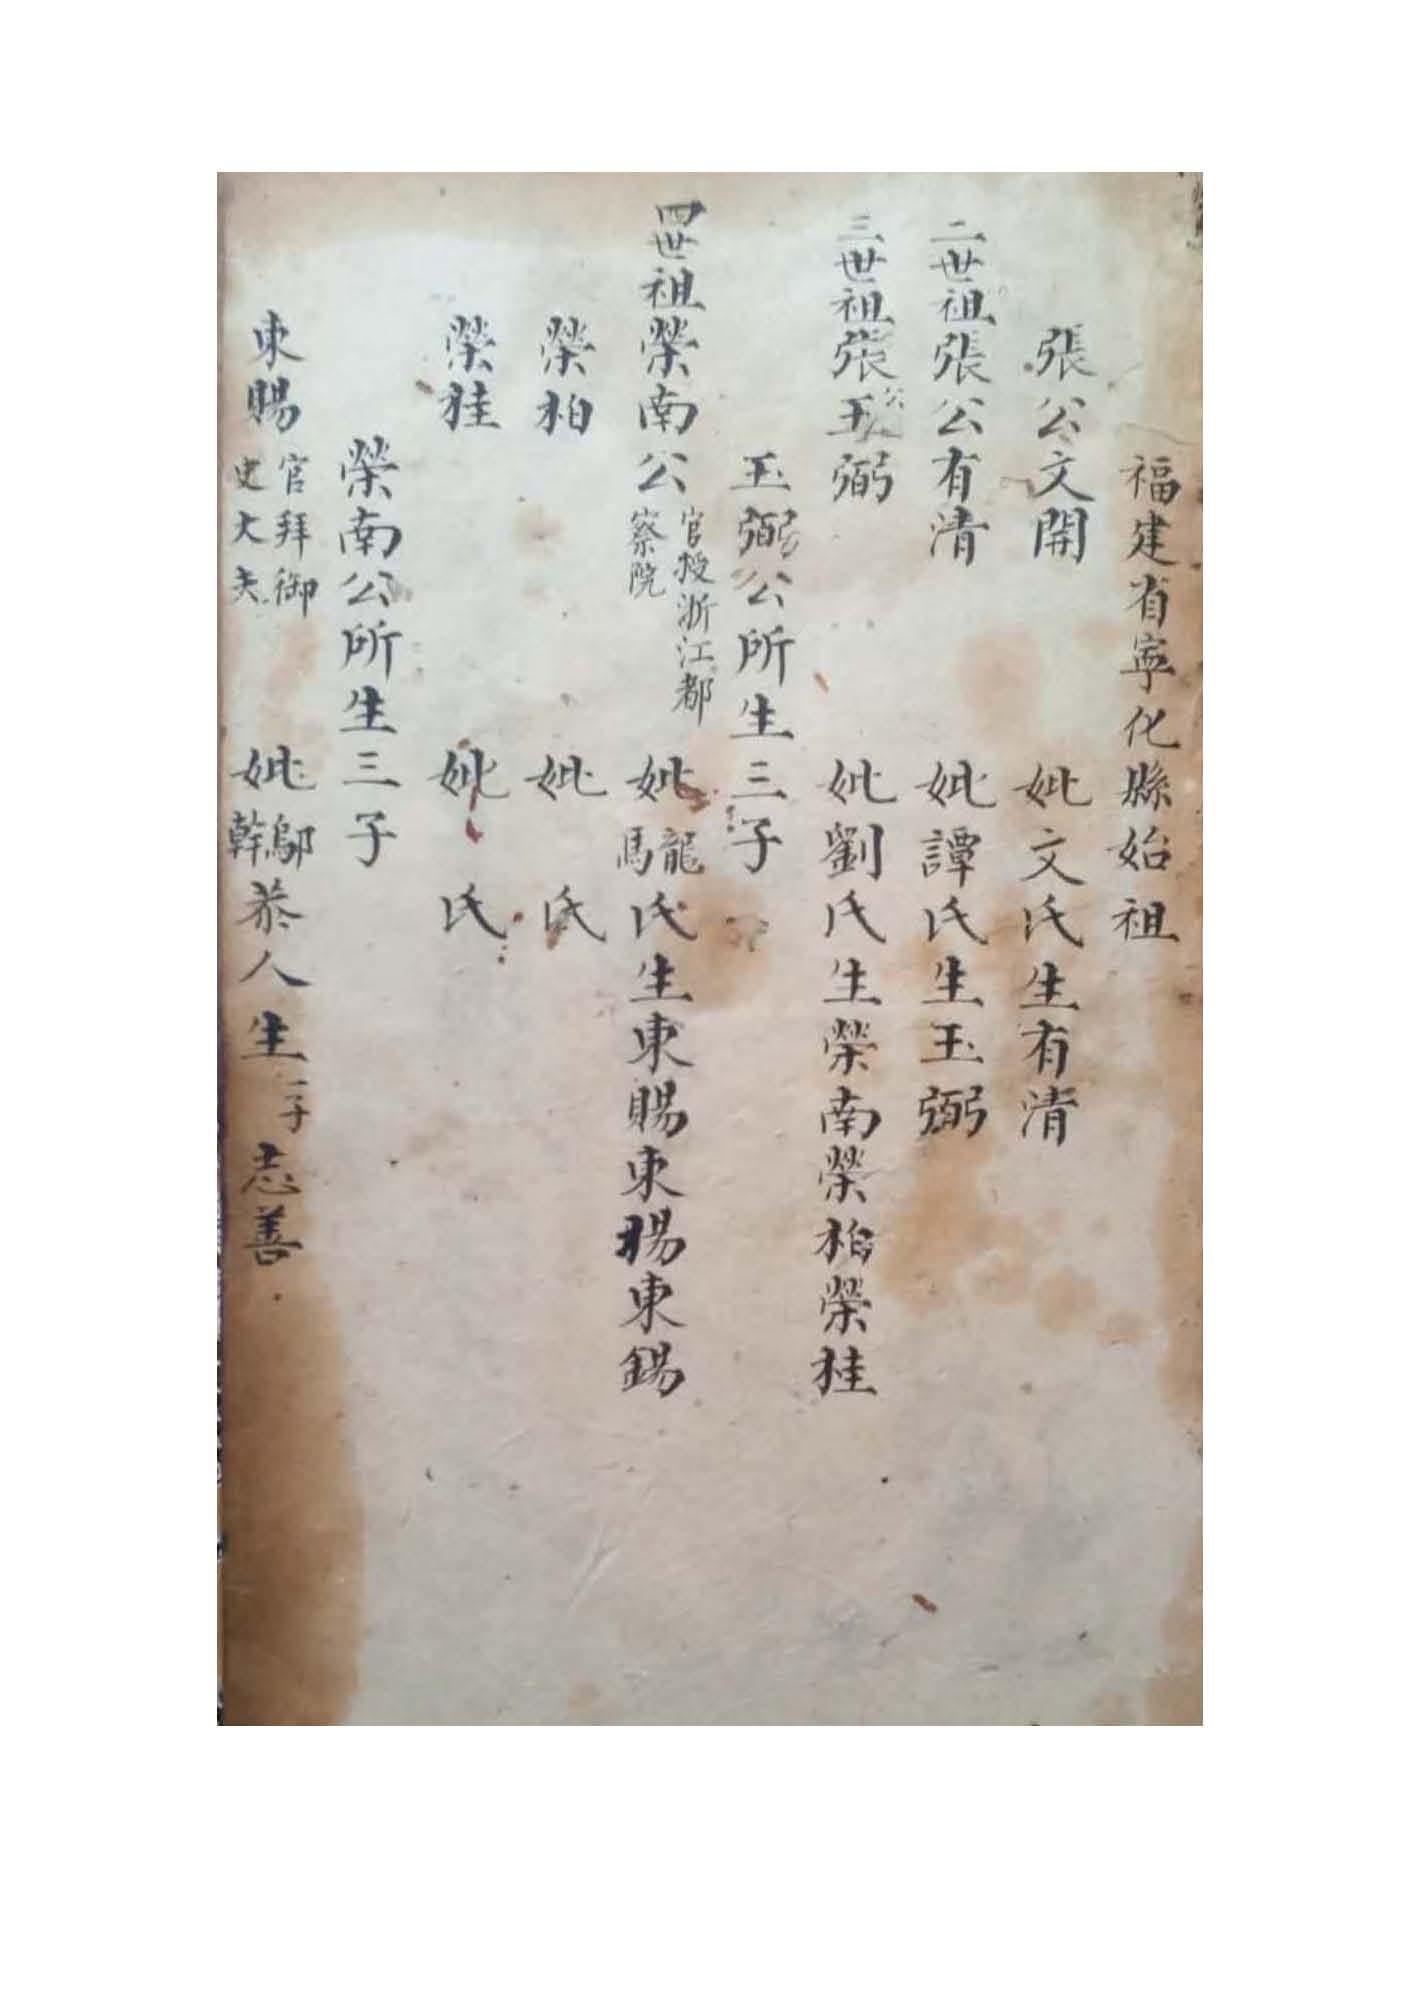 福建省寧化縣始祖
張公文開 妣文氏生有清
二世祖張公有清 妣譚氏生玉弼
三世祖張公玉弼 妣劉氏生榮南榮柏榮桂
玉弼公所生三子
四世祖榮南公 官授浙江都察院 妣龍馬氏生東賜東楊東錫
榮柏 妣 氏
榮桂 妣 氏
榮南公所生三子
東賜 官拜御史大夫 妣鄔幹恭人生一子志善